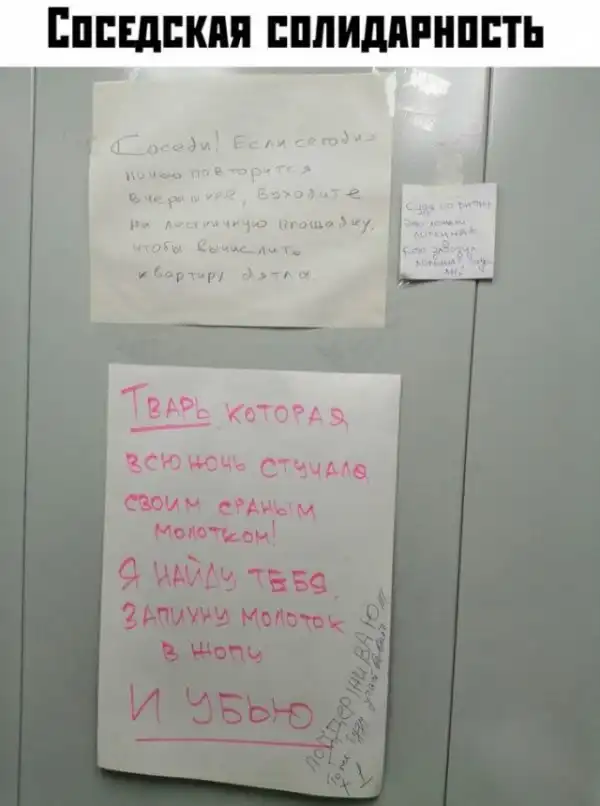 Соседская солидарность
Соседи! Если сегодня
ночью повторится
вчерашнее, выходите
на лестничную площадку,
чтобы вычислить
квартиру дятла
Судя по ритму
это
Тварь которая
всю ночь стучала
своим сраным
молотком!
Я найду тебя,
запихну молоток
в жопу
и убью
поддерживаю